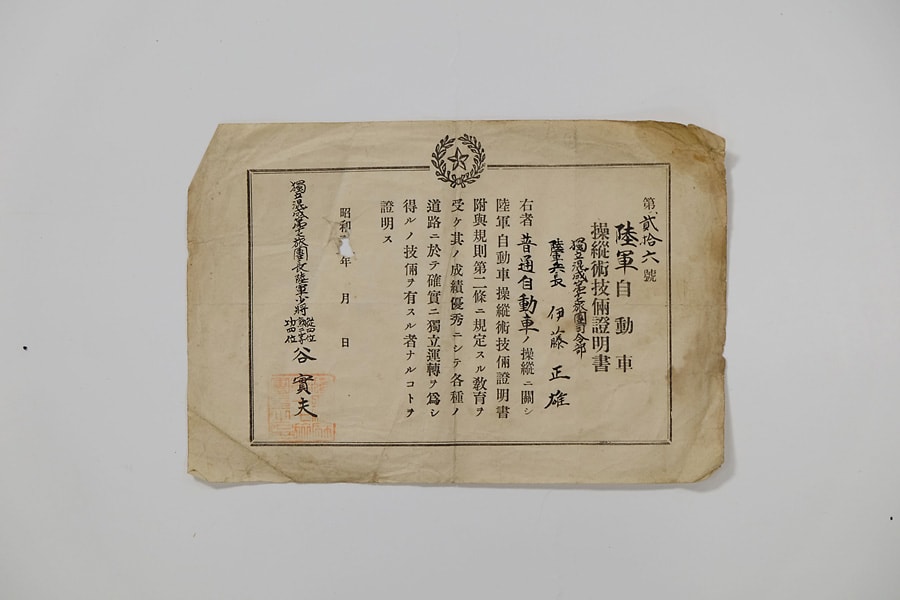 第貳拾六號
陸軍自動車
操縱術技倆證明書
獨立混成第七旅團司令部
陸軍兵長 伊藤正雄
右者普通自動車ノ操縱ニ關シ
陸軍自動車操縱術技倆證明書
附與規則第二條ニ規定スル敎育ヲ
受ケ其ノ成績優秀ニシテ各種ノ
道路ニ於テ確實ニ獨立運轉ヲ爲シ
得ルノ技倆ヲ有スル者ナルコトヲ
證明ス
昭和 年 月 日
獨立混成第七旅團長陸軍少將 從四位 功四位 谷實夫